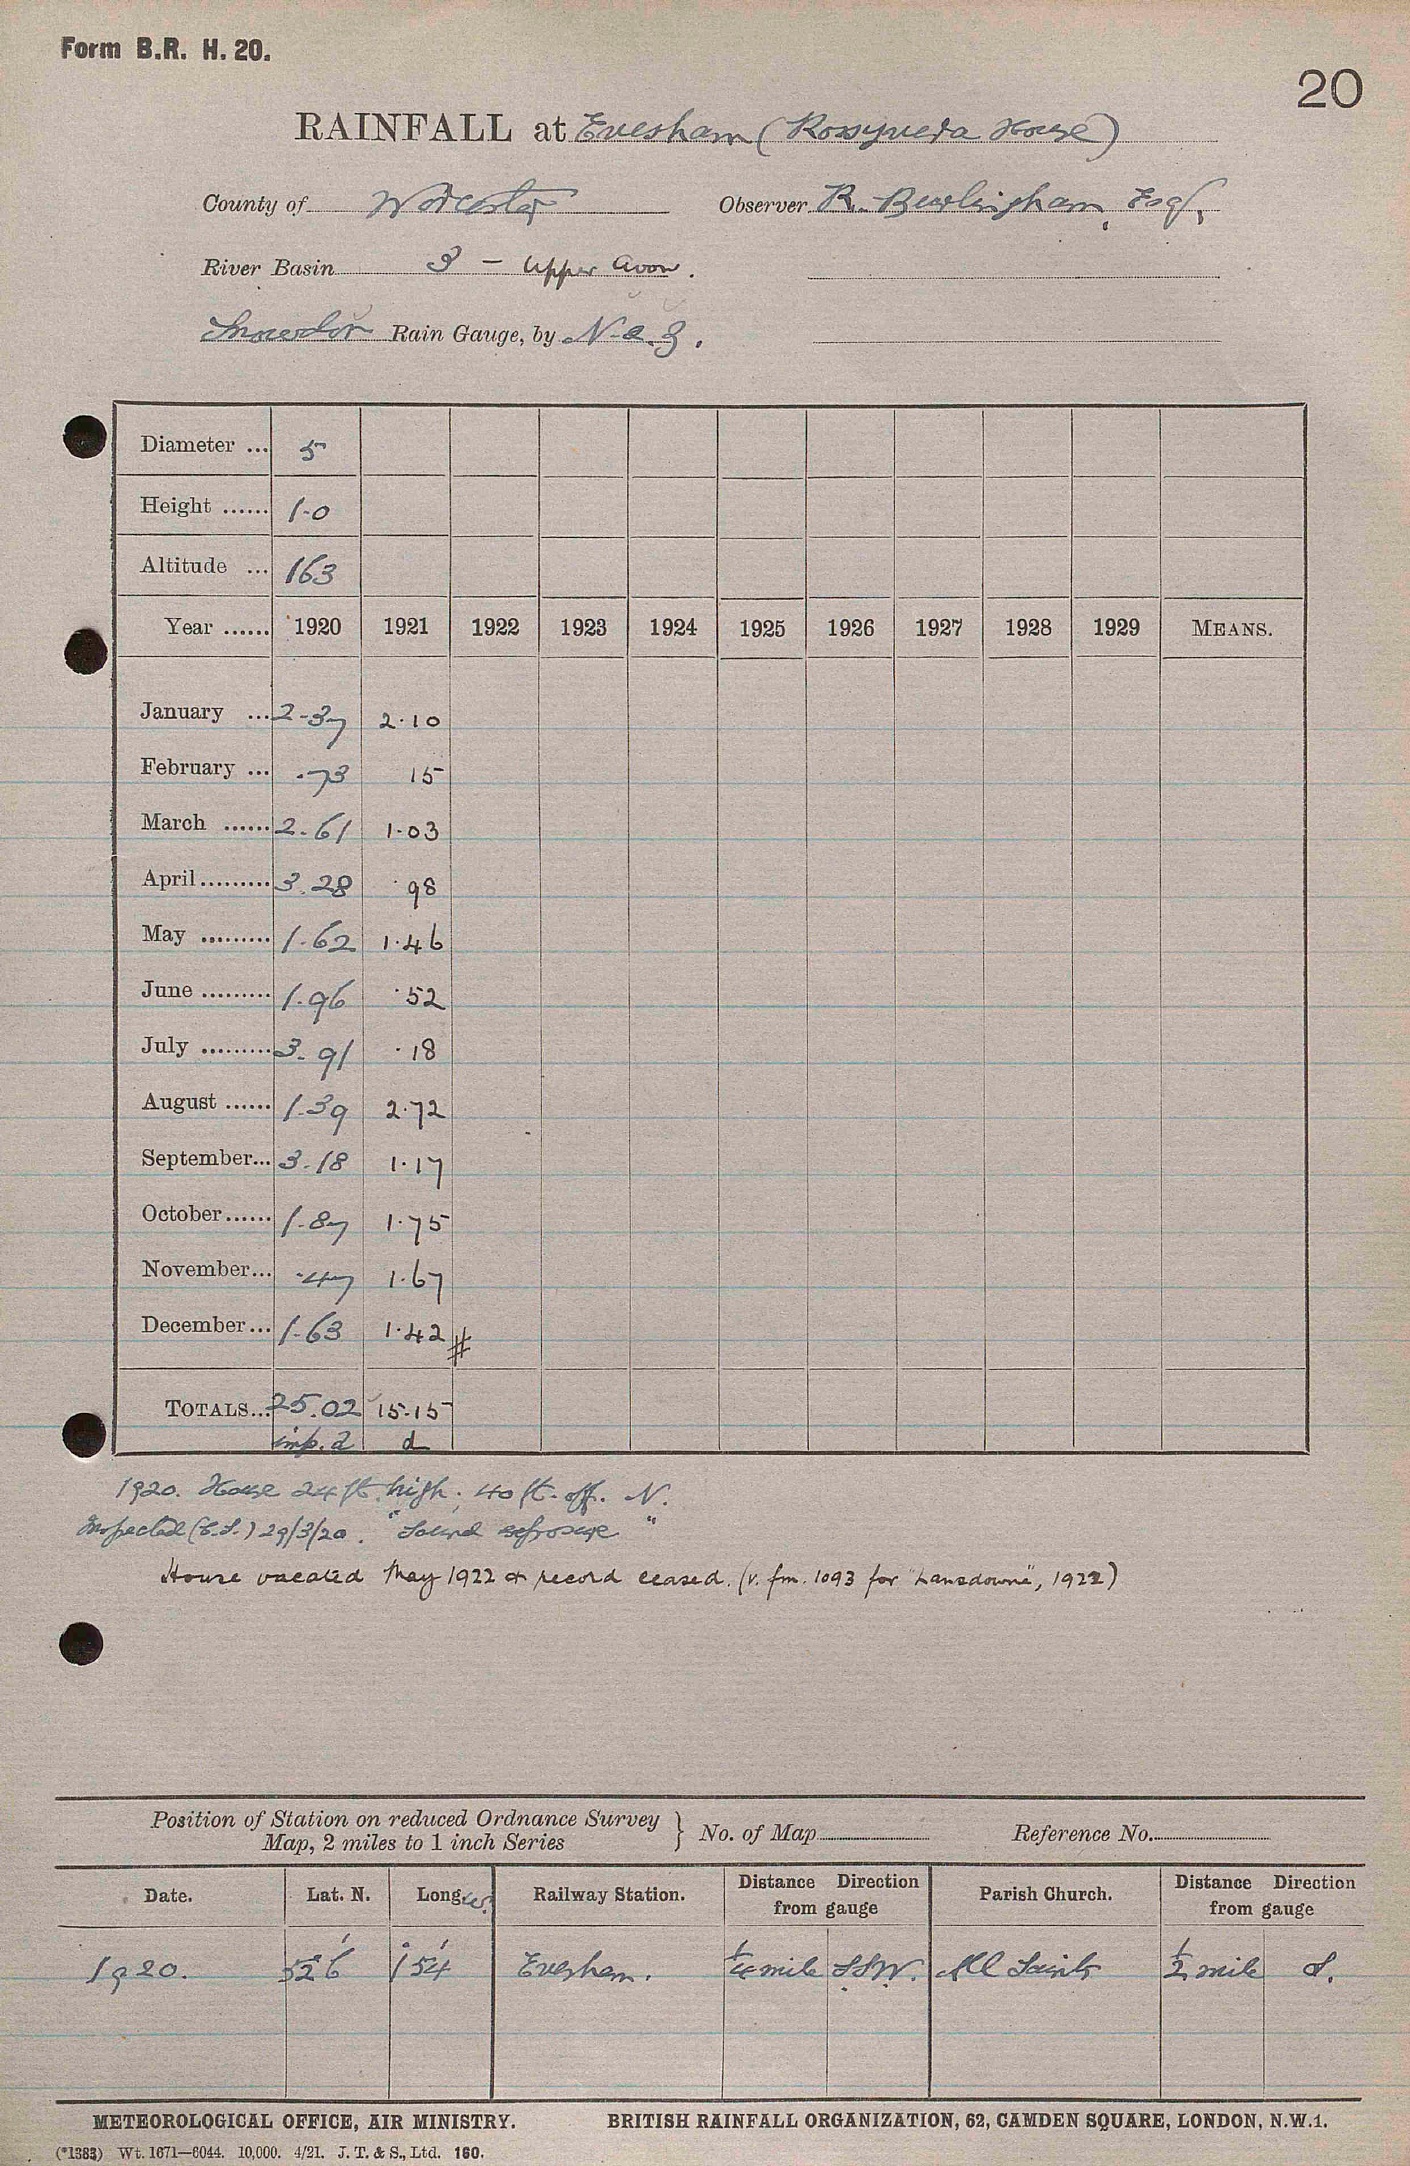 Form B.R. H. 20.
20
RAINFALL at Evesham (Rossyvera House)
County of Worcester Observer R. Burlingham, Esq.
River Basin 3 - Upper Avon.
Snowdon Rain Gauge, by N. & Z.
Diameter ... 5
Height ...... 1.0
Altitude ... 163
Year ...... 1920 1921 1922 1923 1924 1925 1926 1927 1928 1929 MEANS.
January ... 2.37 2.10
February ... .73 15
March ...... 2.61 1.03
April ......... 3.28 .98
May ......... 1.62 1.46
June ......... 1.96 .52
July ......... 3.91 .18
August ...... 1.39 2.72
September... 3.18 1.17
October ...... 1.87 1.75
November... .47 1.67
December... 1.63 1.42 #
TOTALS... 25.02 15.15
imp. d d
1920. House 24 ft. high; 40 ft. off. N.
Inspected (C.S.) 29/3/20. "Sound exposure"
House vacated May 1922 & record ceased. (v. fm. 1093 for "Lansdowne", 1922)
Position of Station on reduced Ordnance Survey
Map, 2 miles to 1 inch Series } No. of Map Reference No.
Date. Lat. N. Long. W. Railway Station. Distance Direction from gauge Parish Church. Distance Direction from gauge
1920. 52° 6' 1° 54' Evesham. 1/4 mile SSW. All Saints 1/2 mile S.
METEOROLOGICAL OFFICE, AIR MINISTRY. BRITISH RAINFALL ORGANIZATION, 62, CAMDEN SQUARE, LONDON, N.W.1.
(*1383) Wt. 1671—6044. 10,000. 4/21. J. T. & S., Ltd. 160.